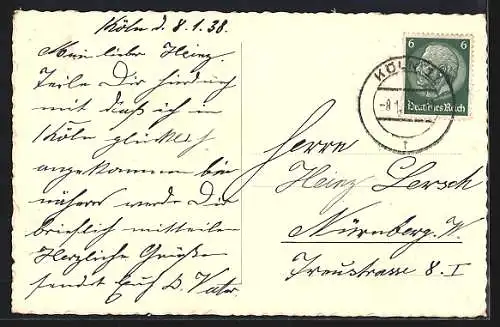 Köln d. 8.1.38.
Mein lieber Heinz.
Teile Dir hierdurch
mit daß ich in
Köln glückl.
angekommen bin
näheres werde Dir
brieflich mitteilen
Herzliche Grüße
sendet Euch D. Vater.
6 6
Deutsches Reich
KÖLN
-8.1.
f
Herrn
Heinz Lersch
Nürnberg. W.
Treustrasse 8. I